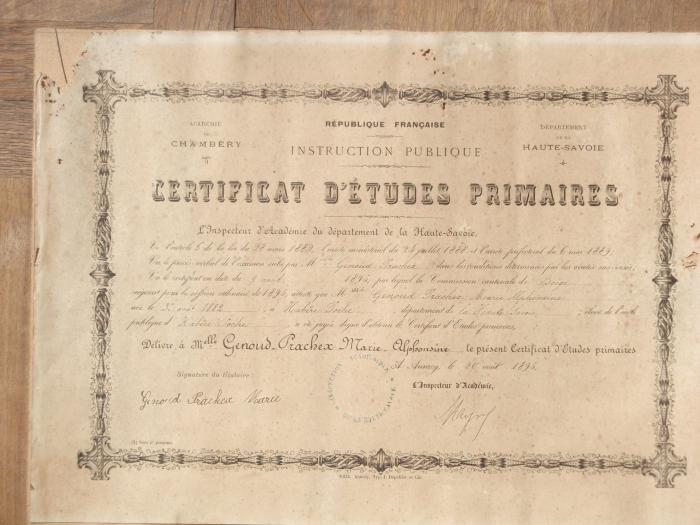 RÉPUBLIQUE FRANÇAISE
ACADÉMIE
DE
CHAMBÉRY
DÉPARTEMENT
DE LA
HAUTE-SAVOIE
INSTRUCTION PUBLIQUE
CERTIFICAT D'ÉTUDES PRIMAIRES
L'Inspecteur d'Académie du département de la Haute-Savoie,
Vu l'article 6 de la loi du 28 mars 1882, l'arrêté ministériel du 24 juillet 1888 et l'arrêté préfectoral du 6 mai 1889,
Vu le procès-verbal de l'examen subi par Melle Genoud Prachex dans les conditions déterminées par les
Vu le certificat en date du 1894, par lequel la Commission cantonale de Boëge
pour la session ordinaire de 1894, atteste que Melle Genoud Prachex Marie Alphonsine
née le 1882, à Habère Poche, département de la Haute Savoie, élève de l'école
publique d'Habère Poche a été jugée digne d'obtenir le Certificat d'Études primaires,
Délivre à Melle Genoud-Prachex Marie-Alphonsine le présent Certificat d'Études primaires
A Annecy, le 20 août 1894.
Signature du Titulaire:
L'Inspecteur d'Académie,
Genoud Prachex Marie